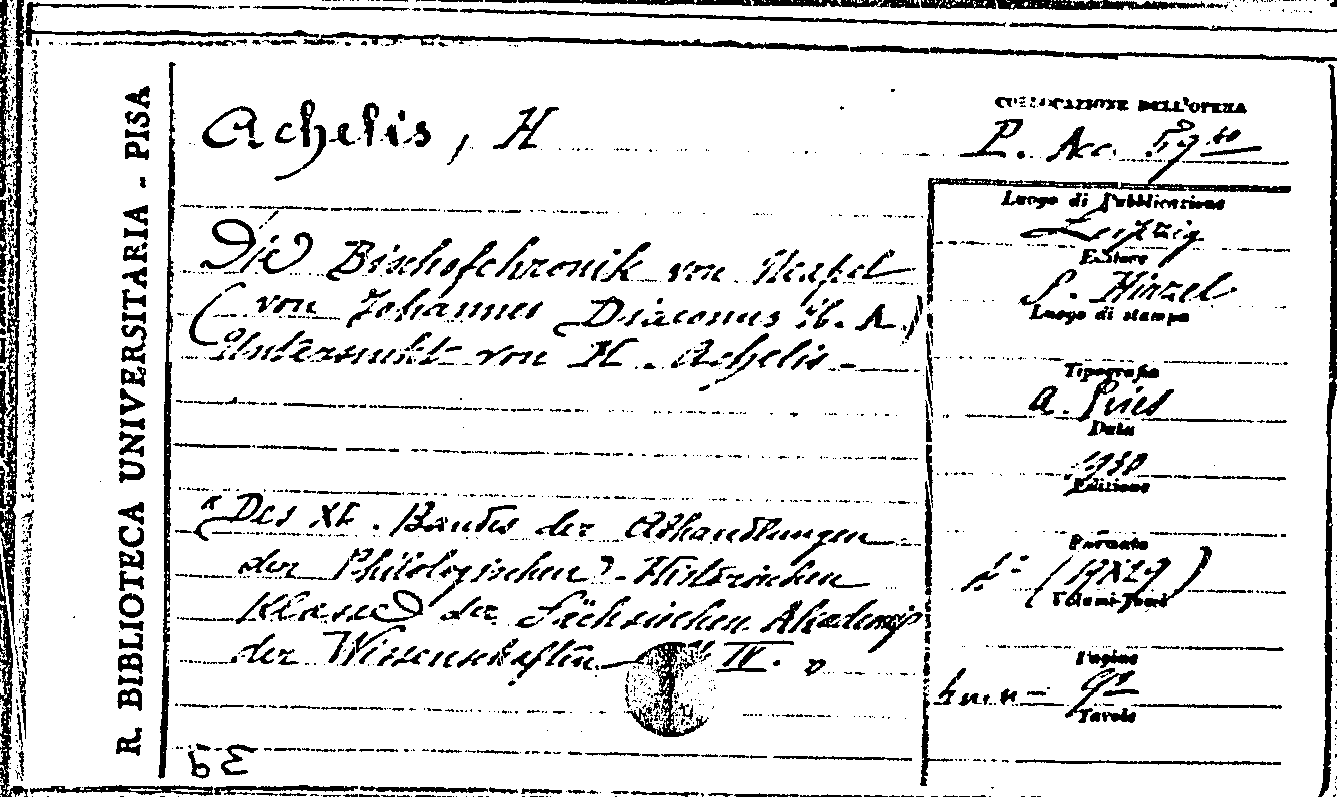 R. BIBLIOTECA UNIVERSITARIA - PISA
Achelis, H
Die Bischofchronik von Neapel
(von Johannes Diaconus
Untersucht von H. Achelis -
"Des XL. Bandes der Abhandlungen
der Philologischen-Historischen
Klasse der Sächsischen Akademie
der Wissenschaften IV. "
COLLOCAZIONE DELL'OPERA
P. Acc. 59
Luogo di Pubblicazione
Leipzig
Editore
S. Hirzel
Luogo di stampa
Tipografia
A. Pries
Data
1930
Edizione
Formato
(19x29)
Volumi-Tomi
Pagine
Tavole